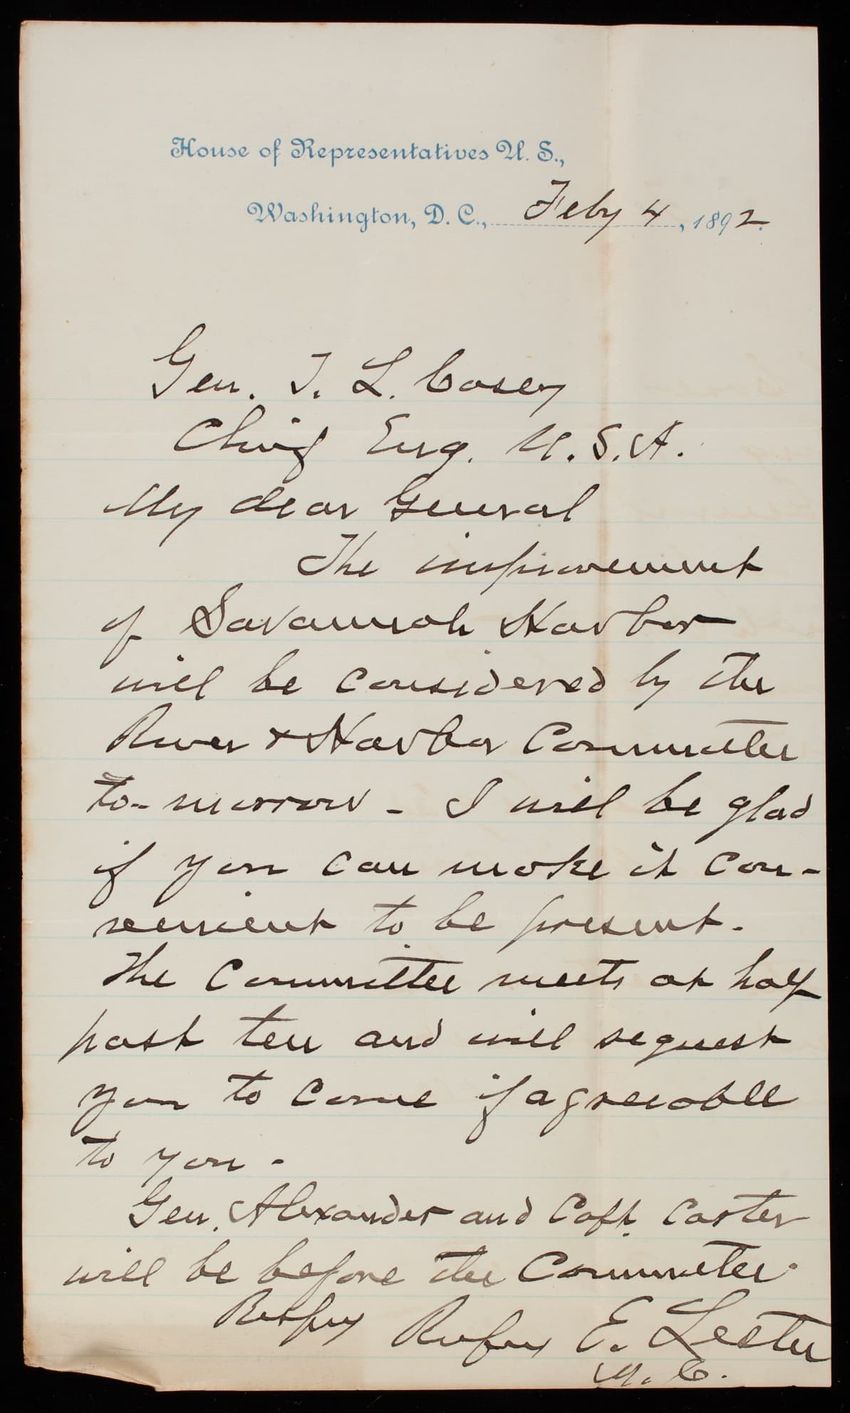 House of Representatives U. S.,
Washington, D. C., Feby 4, 1892.
Gen. T. L. Casey
Chief Eng. U.S.A.
My dear General
The improvement
of Savannah Harbor
will be considered by the
River & Harbor Committee
to-morrow - I will be glad
if you can make it con-
venient to be present.
The Committee meets at half
past ten and will request
you to come if agreeable
to you -
Gen. Alexander and Capt. Carter
will be before the Committee.
Respy Rufus E. Lester
M.C.